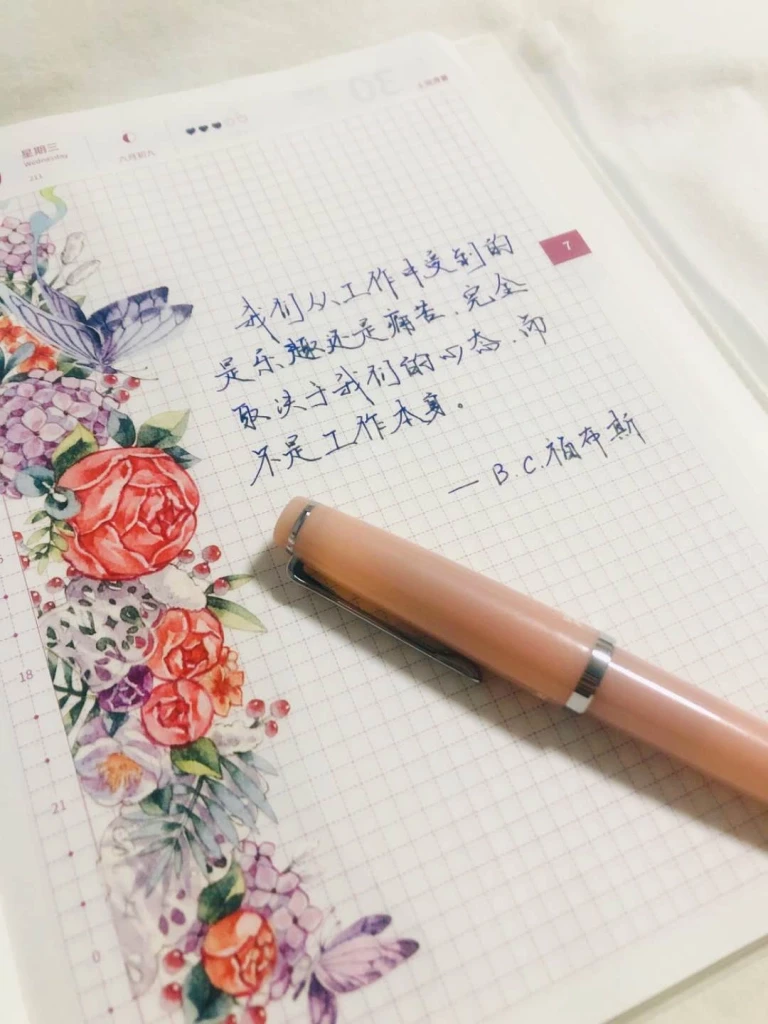 星期三
Wednesday
211
六月初八
30
7
我们从工作中受到的
是乐趣还是痛苦.完全
取决于我们的心态.而
不是工作本身。
— B.C.福布斯
18
21
0